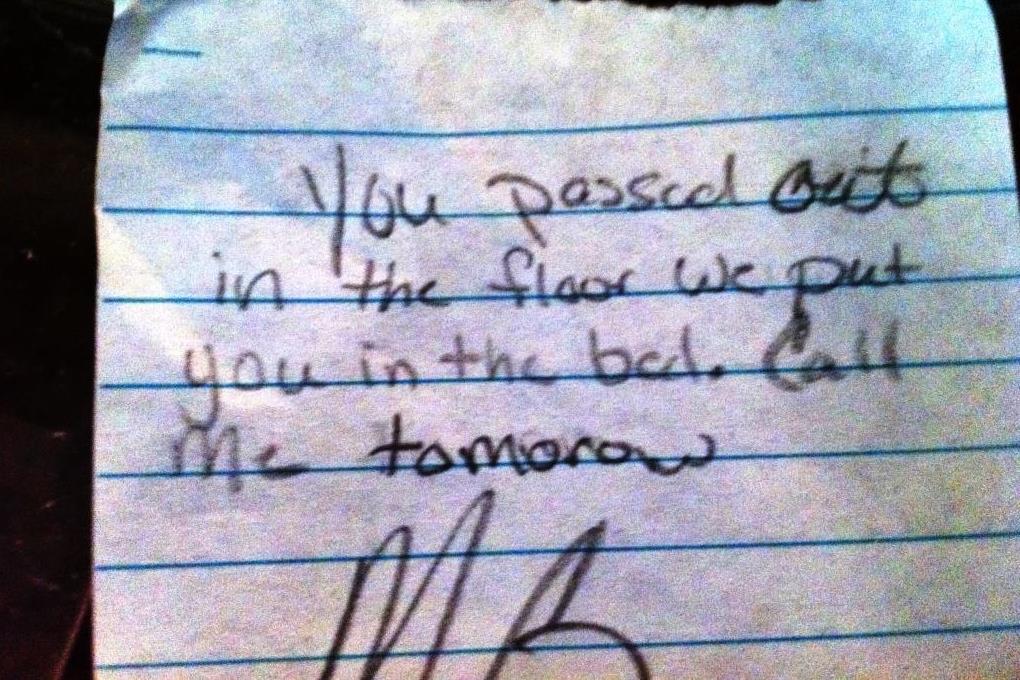 You passed out
in the floor we put
you in the bed. Call
me tomorow